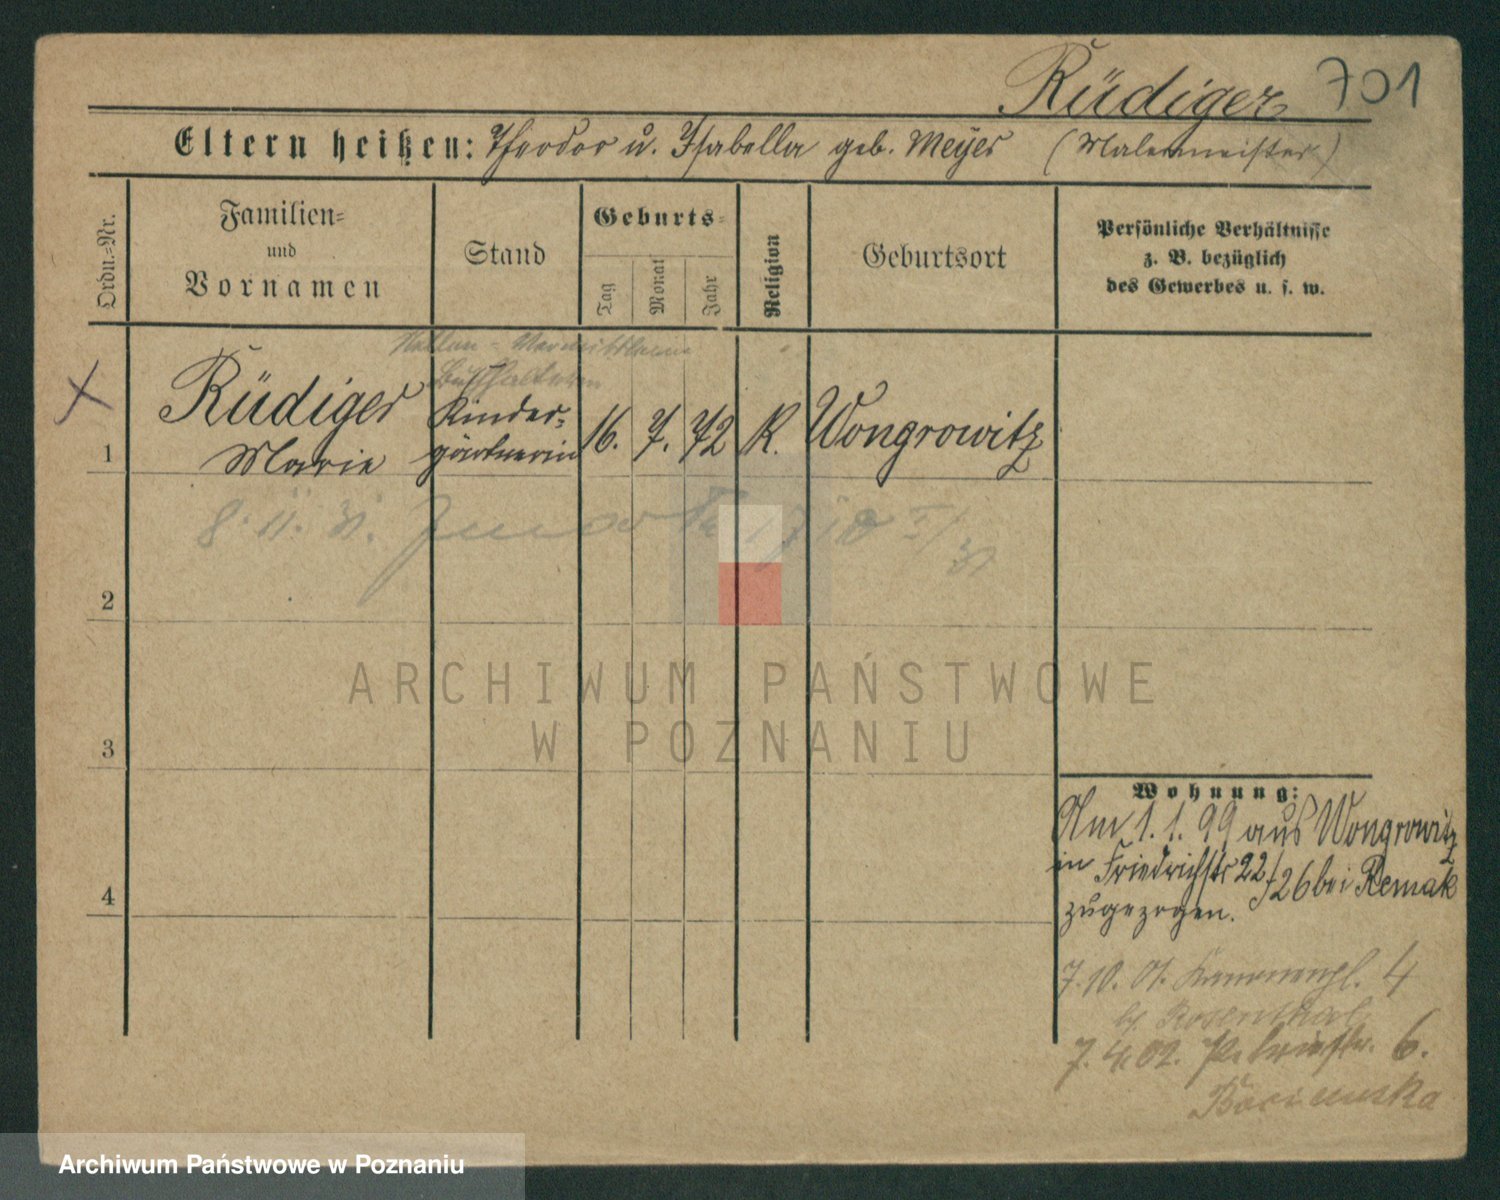 Rüdiger 701
Eltern heißen: Theodor u. Isabella geb. Meyer (Malermeister)
Ordn.-Nr.
Familien-
und
Vornamen
Stand
Geburts-
Tag
Monat
Jahr
Religion
Geburtsort
Persönliche Verhältnisse
z. B. bezüglich
des Gewerbes u. s. w.
Buchhalterin
1 Rüdiger Kinder- 16. 7. 72 K. Wongrowitz
Marie gärtnerin
8. 11. 31.
2
ARCHIWUM PAŃSTWOWE
W POZNANIU
3
Wohnung:
Am 1.1.99 aus Wongrowitz
in Friedrichstr 22/26 bei Remak
zugezogen.
4
7.10.01. 4
b. Rosenthal
7.4.02. Petristr. 6.
Archiwum Państwowe w Poznaniu